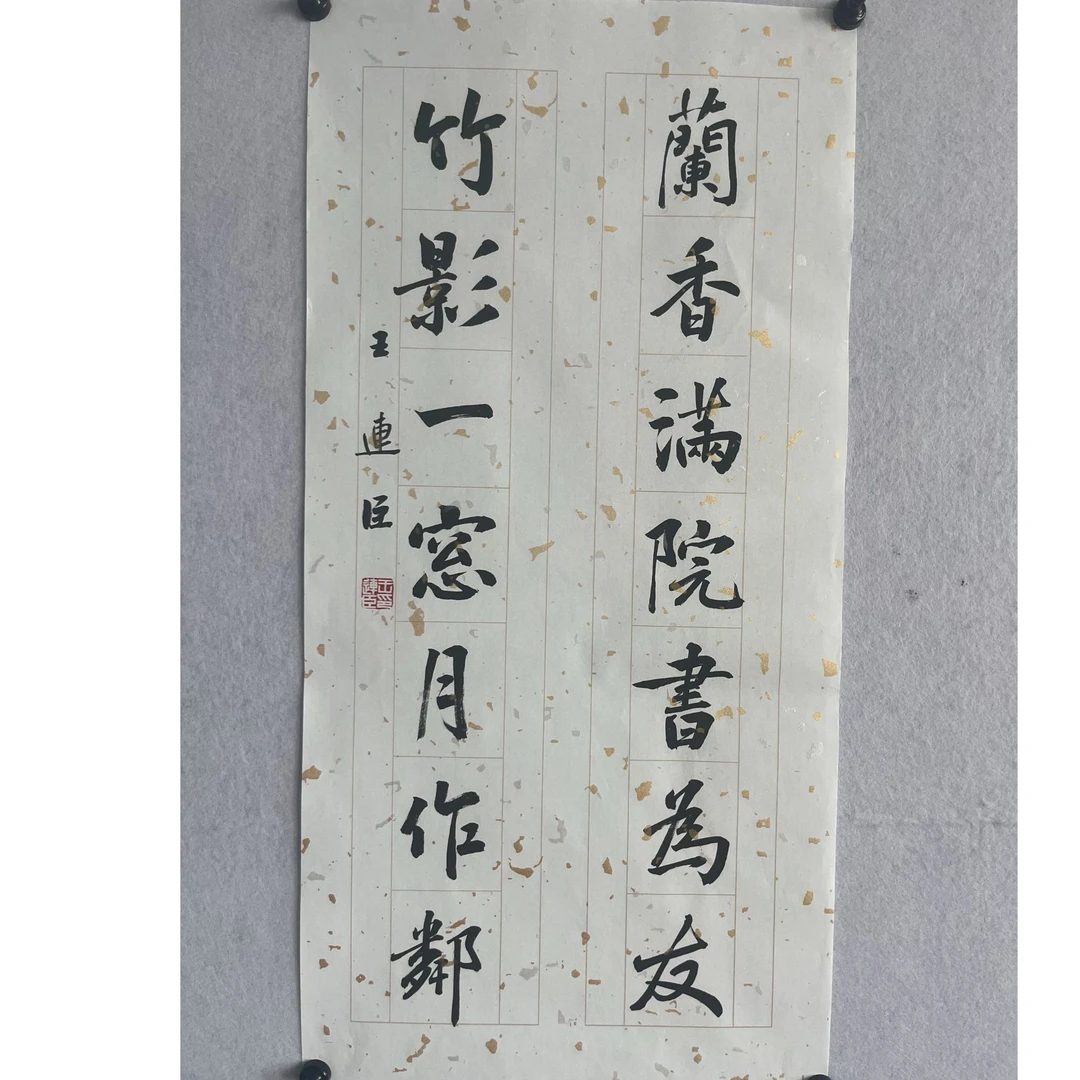 蘭香滿院書為友
竹影一窓月作鄰
王連臣
王連臣印